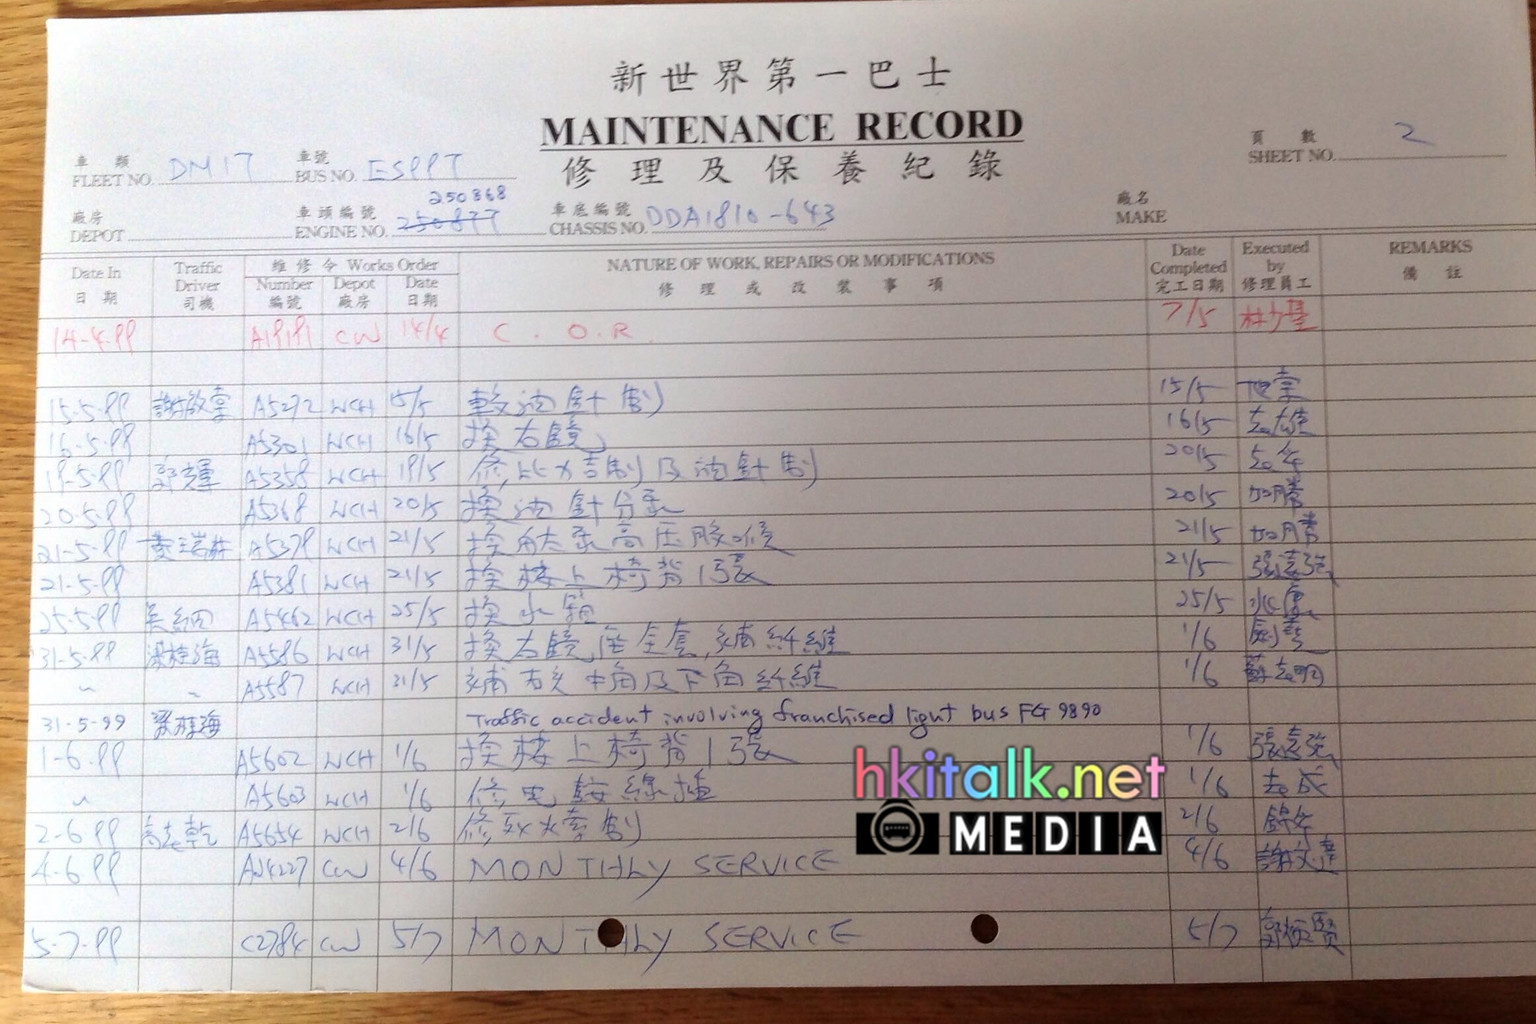 新世界第一巴士
MAINTENANCE RECORD
修理及保養紀錄
頁數 2
SHEET NO.
車類 車號
FLEET NO. DM17 BUS NO. ES997
廠房 車頭編號 250868 車底編號 廠名
DEPOT ENGINE NO. 250877 CHASSIS NO. DDA1810-643 MAKE
Date In 日期 Traffic Driver 司機 維修令 Works Order Number 編號 Depot 廠房 Date 日期 NATURE OF WORK, REPAIRS OR MODIFICATIONS 修理或改裝事項 Date Completed 完工日期 Executed by 修理員工 REMARKS 備註
14-4-99 CW 14/4 C.O.R. 7/5
15-5-99 A5272 WCH 15/5 油針制 15/5
16-5-99 A5301 WCH 16/5 換右鏡 16/5
19-5-99 郭輝 A5358 WCH 19/5 修 制及油針制 20/5
20-5-99 A5368 WCH 20/5 換油針 20/5
21-5-99 黃瑞林 A5379 WCH 21/5 換 高压胶喉 21/5
21-5-99 A5381 WCH 21/5 換樓上椅背1張 21/5
25-5-99 A5462 WCH 25/5 換水 25/5
31-5-99 梁桂海 A5586 WCH 31/5 換右鏡座全套,補纤維 1/6
〃 〃 A5587 WCH 31/5 補 中角及下角纤維 1/6
31-5-99 梁桂海 Traffic accident involving franchised light bus FG 9890
1-6-99 A5602 WCH 1/6 換樓上椅背1張 1/6
〃 A5603 WCH 1/6 修 線 1/6
2-6-99 A5654 WCH 2/6 修死火 制 2/6
4-6-99 CW 4/6 MONTHLY SERVICE 4/6
5-7-99 C2784 CW 5/7 MONTHLY SERVICE 5/7
hkitalk.net
MEDIA